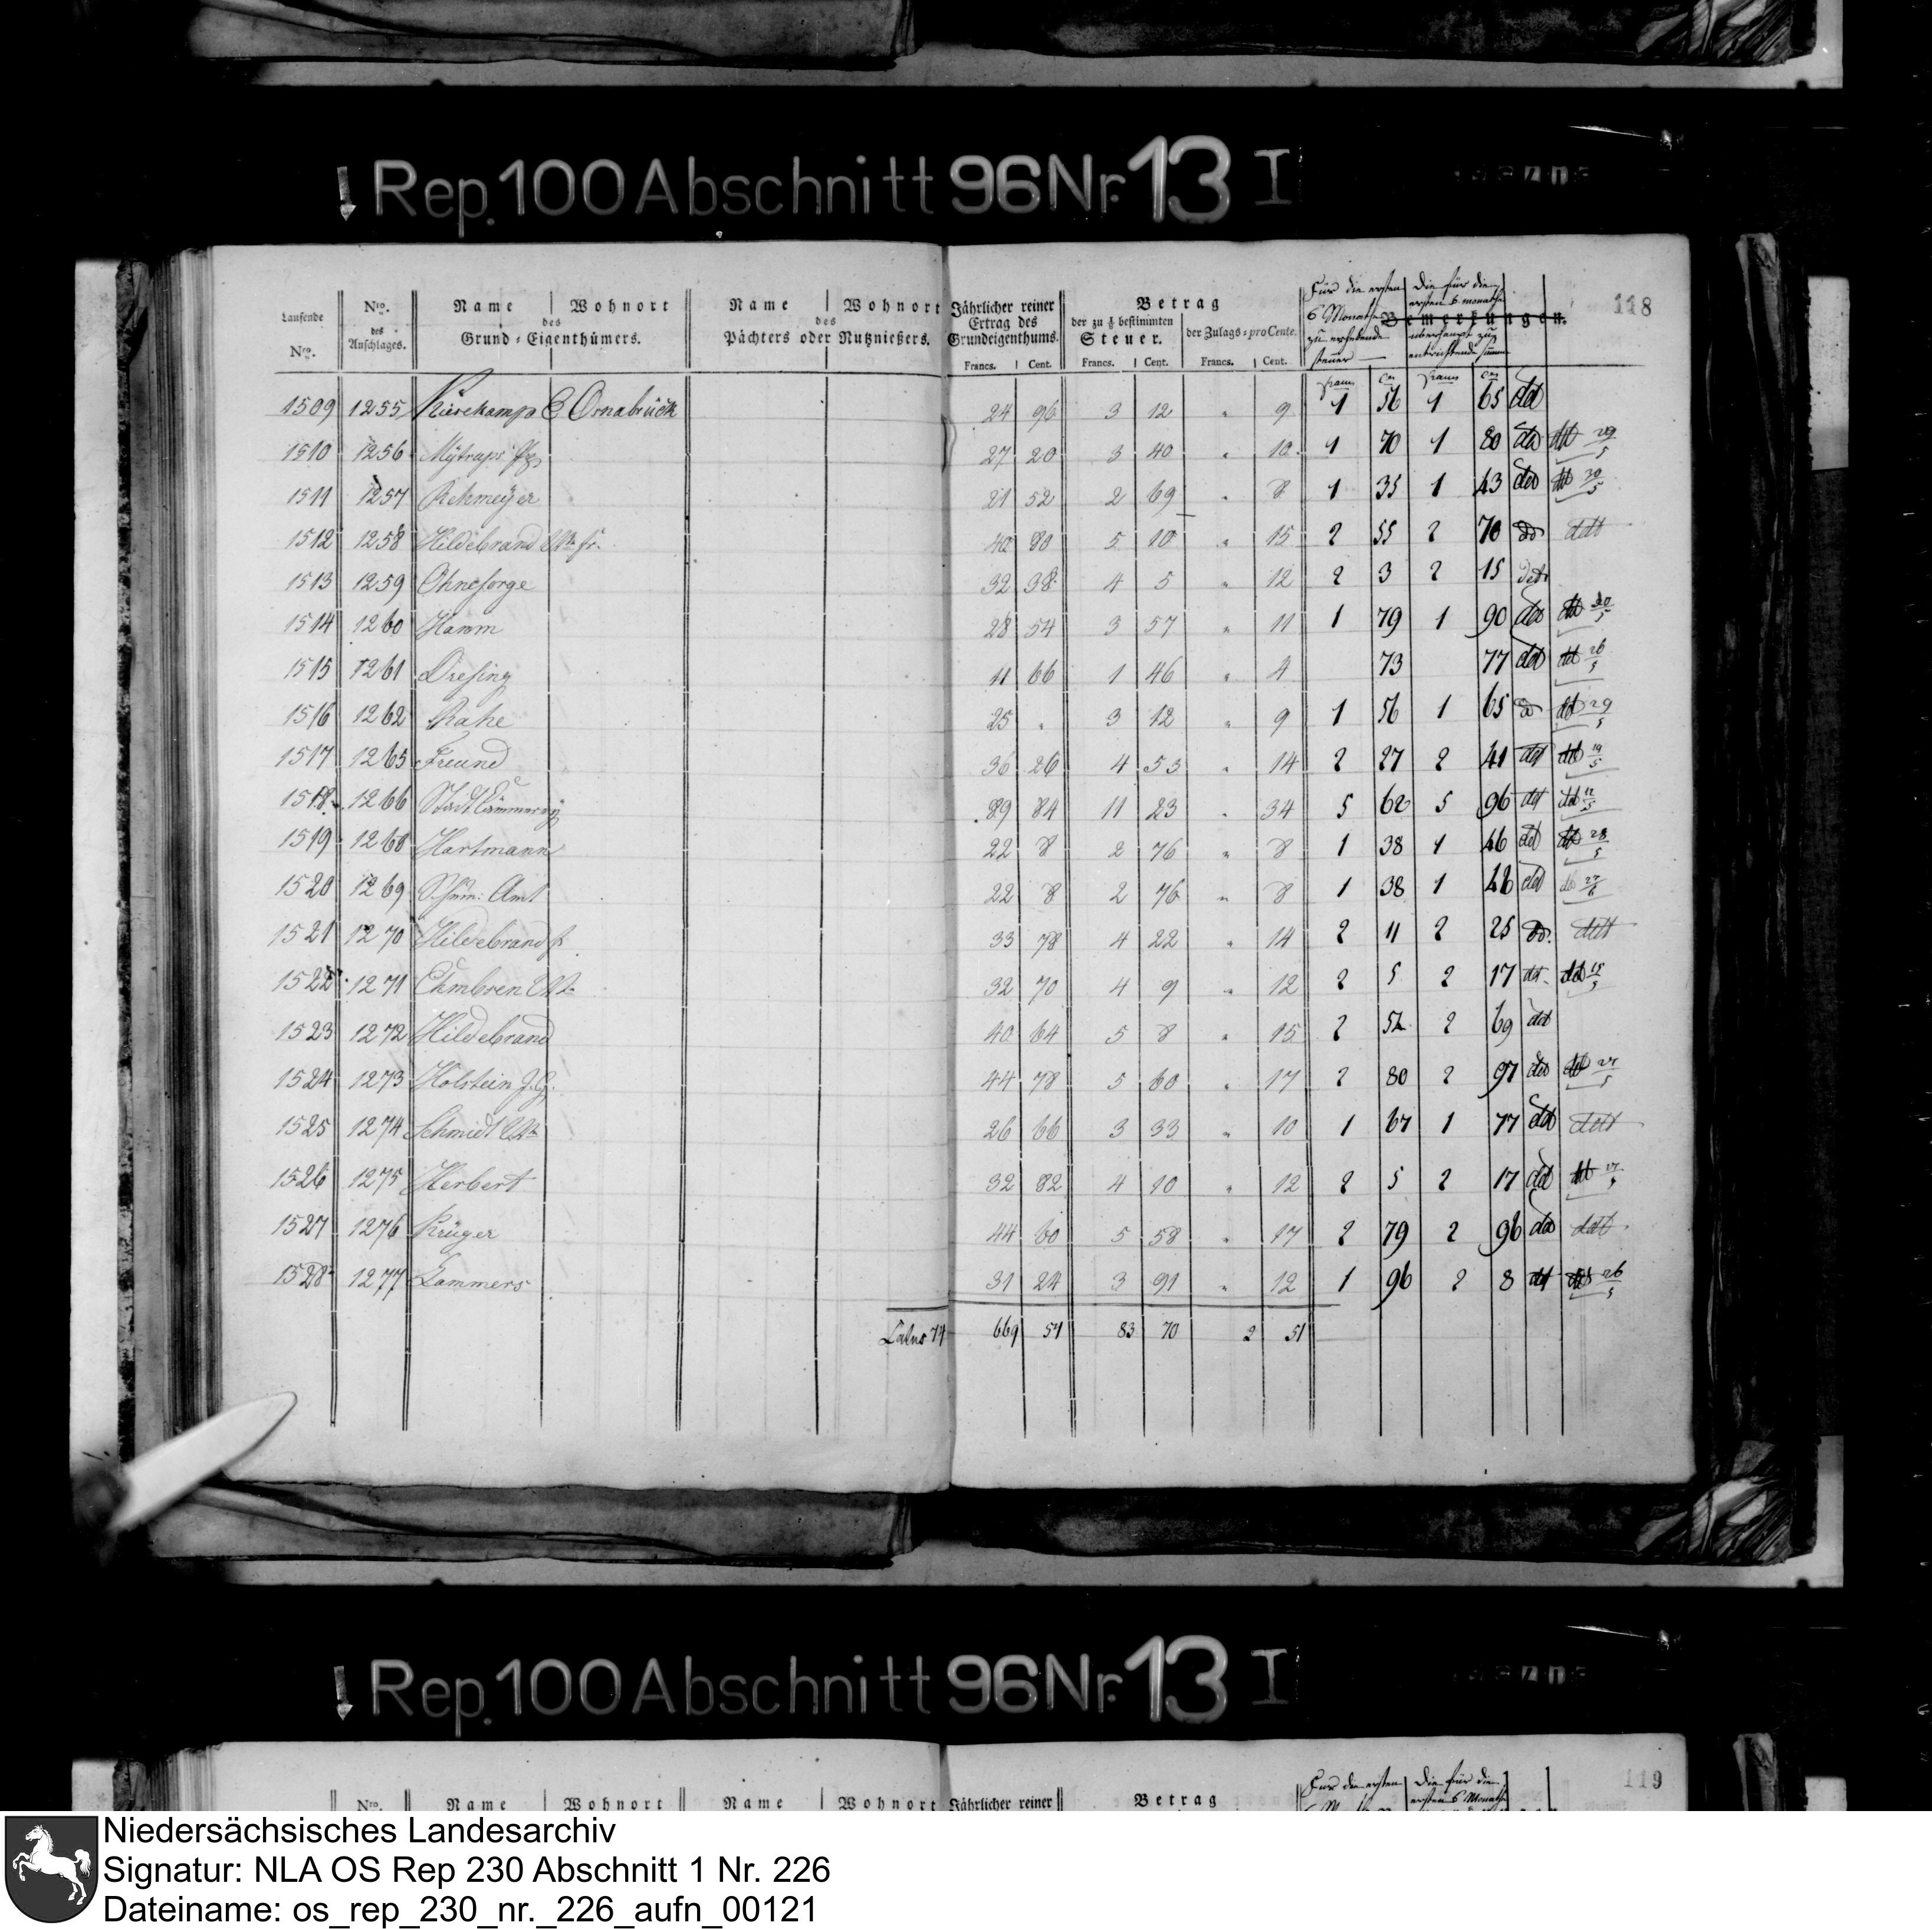 Rep. 100 Abschnitt 96 Nr. 13 I
118
Laufende Nro.
Nro. des Anschlages.
Name | Wohnort des Grund-Eigenthümers.
Name | Wohnort des Pächters oder Nutznießers.
Jährlicher reiner Ertrag des Grundeigenthums.
Betrag
der zu 1/8 bestimmten Steuer.
der Zulags-pro Cente.
Für die ersten 6 Monathe zu erhebende Steuer
Die für die ersten 6 monathe überhaupt zu entrichtende Summe
Bemerkungen.
Francs. Cent. Francs. Cent. Francs. Cent. Francs Cen Francs Cen
1509 1255 Osnabrück 24 96 3 12 " 9 1 56 1 65 ddt
1510 1256 27 20 3 40 " 10 1 70 1 80 ddt 29/5
1511 1257 Rehmeÿer 21 52 2 69 " 8 1 35 1 43 ddt 30/5
1512 1258 Hildebrand Wte. jr. 40 80 5 10 " 15 2 55 2 70
1513 1259 Ohnesorge 32 38 4 5 " 12 2 3 2 15
1514 1260 Hamm 28 54 3 57 " 11 1 79 1 90 30/5
1515 1261 Diesing 11 66 1 46 " 4 73 77 ddt 26/5
1516 1262 Rahe 25 " 3 12 " 9 1 56 1 65 29/5
1517 1265 Freund 36 26 4 53 " 14 2 27 2 41 19/5
1518 1266 Stadt Cämmereÿ 89 84 11 23 " 34 5 62 5 96 12/5
1519 1268 Hartmann 22 8 2 76 " 8 1 38 1 46 28/5
1520 1269 Amt 22 8 2 76 " 8 1 38 1 46
1521 1270 Hildebrand jr. 33 78 4 22 " 14 2 11 2 25
1522 1271 32 70 4 9 " 12 2 5 2 17 15/5
1523 1272 Hildebrand 40 64 5 8 " 15 2 54 2 69
1524 1273 Holstein J. G. 44 78 5 60 " 17 2 80 2 97
1525 1274 Schmidt Wte 26 66 3 33 " 10 1 67 1 77
1526 1275 Herbert 32 82 4 10 " 12 2 5 2 17
1527 1276 Krüger 44 60 5 58 " 17 2 79 2 96
1528 1277 Lammers 31 24 3 91 " 12 1 96 2 8 26/5
Latus 77 669 54 83 70 2 51
Rep. 100 Abschnitt 96 Nr. 13 I
119
Nro. Name | Wohnort Name | Wohnort Jährlicher reiner Betrag
Für die ersten Die für die
ersten 6 Monathe
Niedersächsisches Landesarchiv
Signatur: NLA OS Rep 230 Abschnitt 1 Nr. 226
Dateiname: os_rep_230_nr._226_aufn_00121